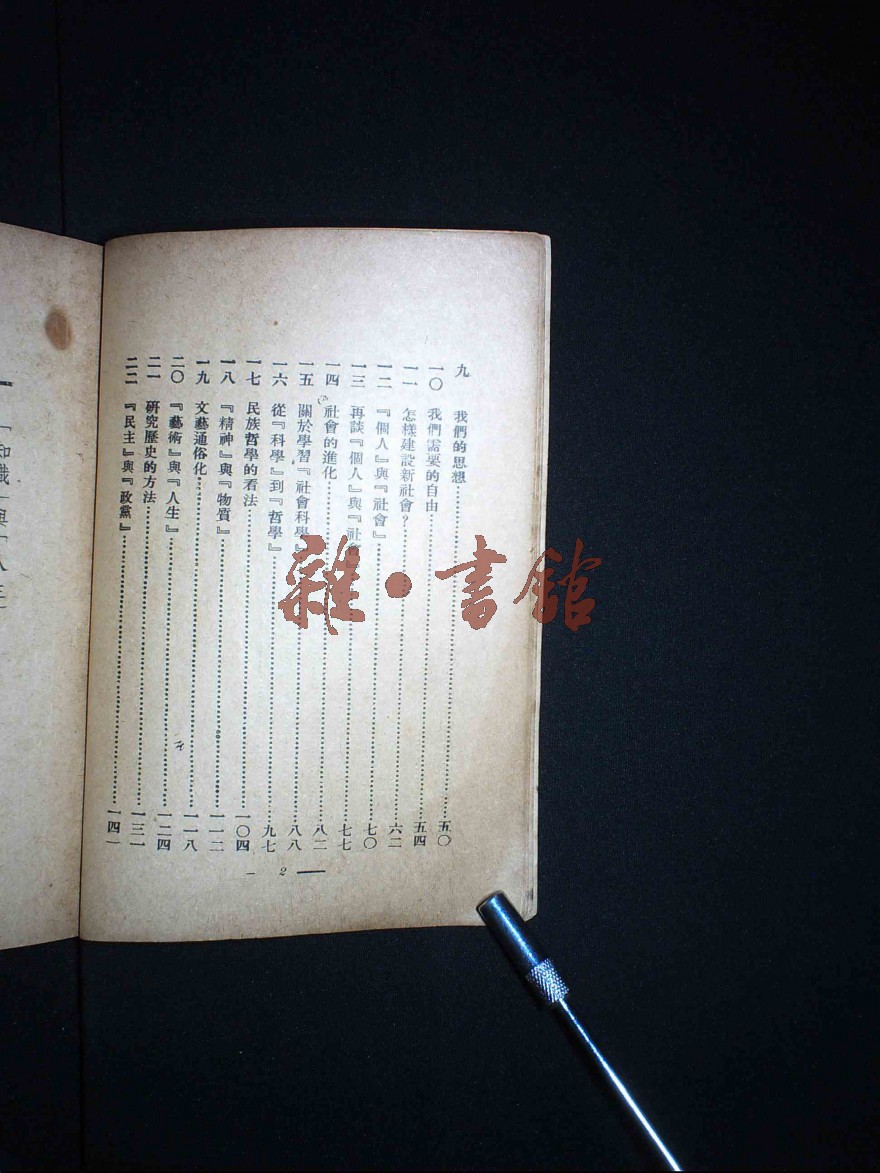 九 我們的思想 五〇
一〇 我們需要的自由 五四
一一 怎樣建設新社會？ 六二
一二 『個人』與『社會』 七〇
一三 再談『個人』與『社會 七七
一四 社會的進化 八二
一五 關於學習『社會科學』 八八
一六 從『科學』到『哲學』 九七
一七 民族哲學的看法 一〇四
一八 『精神』與『物質』 一一二
一九 文藝通俗化 一一八
二〇 『藝術』與『人生』 一二四
二一 研究歷史的方法 一三一
二二 『民主』與『政黨』 一四一
— 2 —
一 「知識」與「人生」
雜·書館